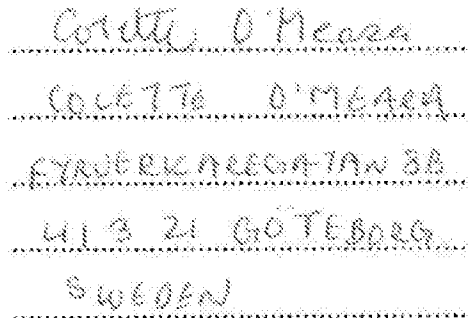 Colette O'Meara
COLETTE O'MEARA
FYRVERKAREGATAN 3B
413 21 GÖTEBORG
SWEDEN